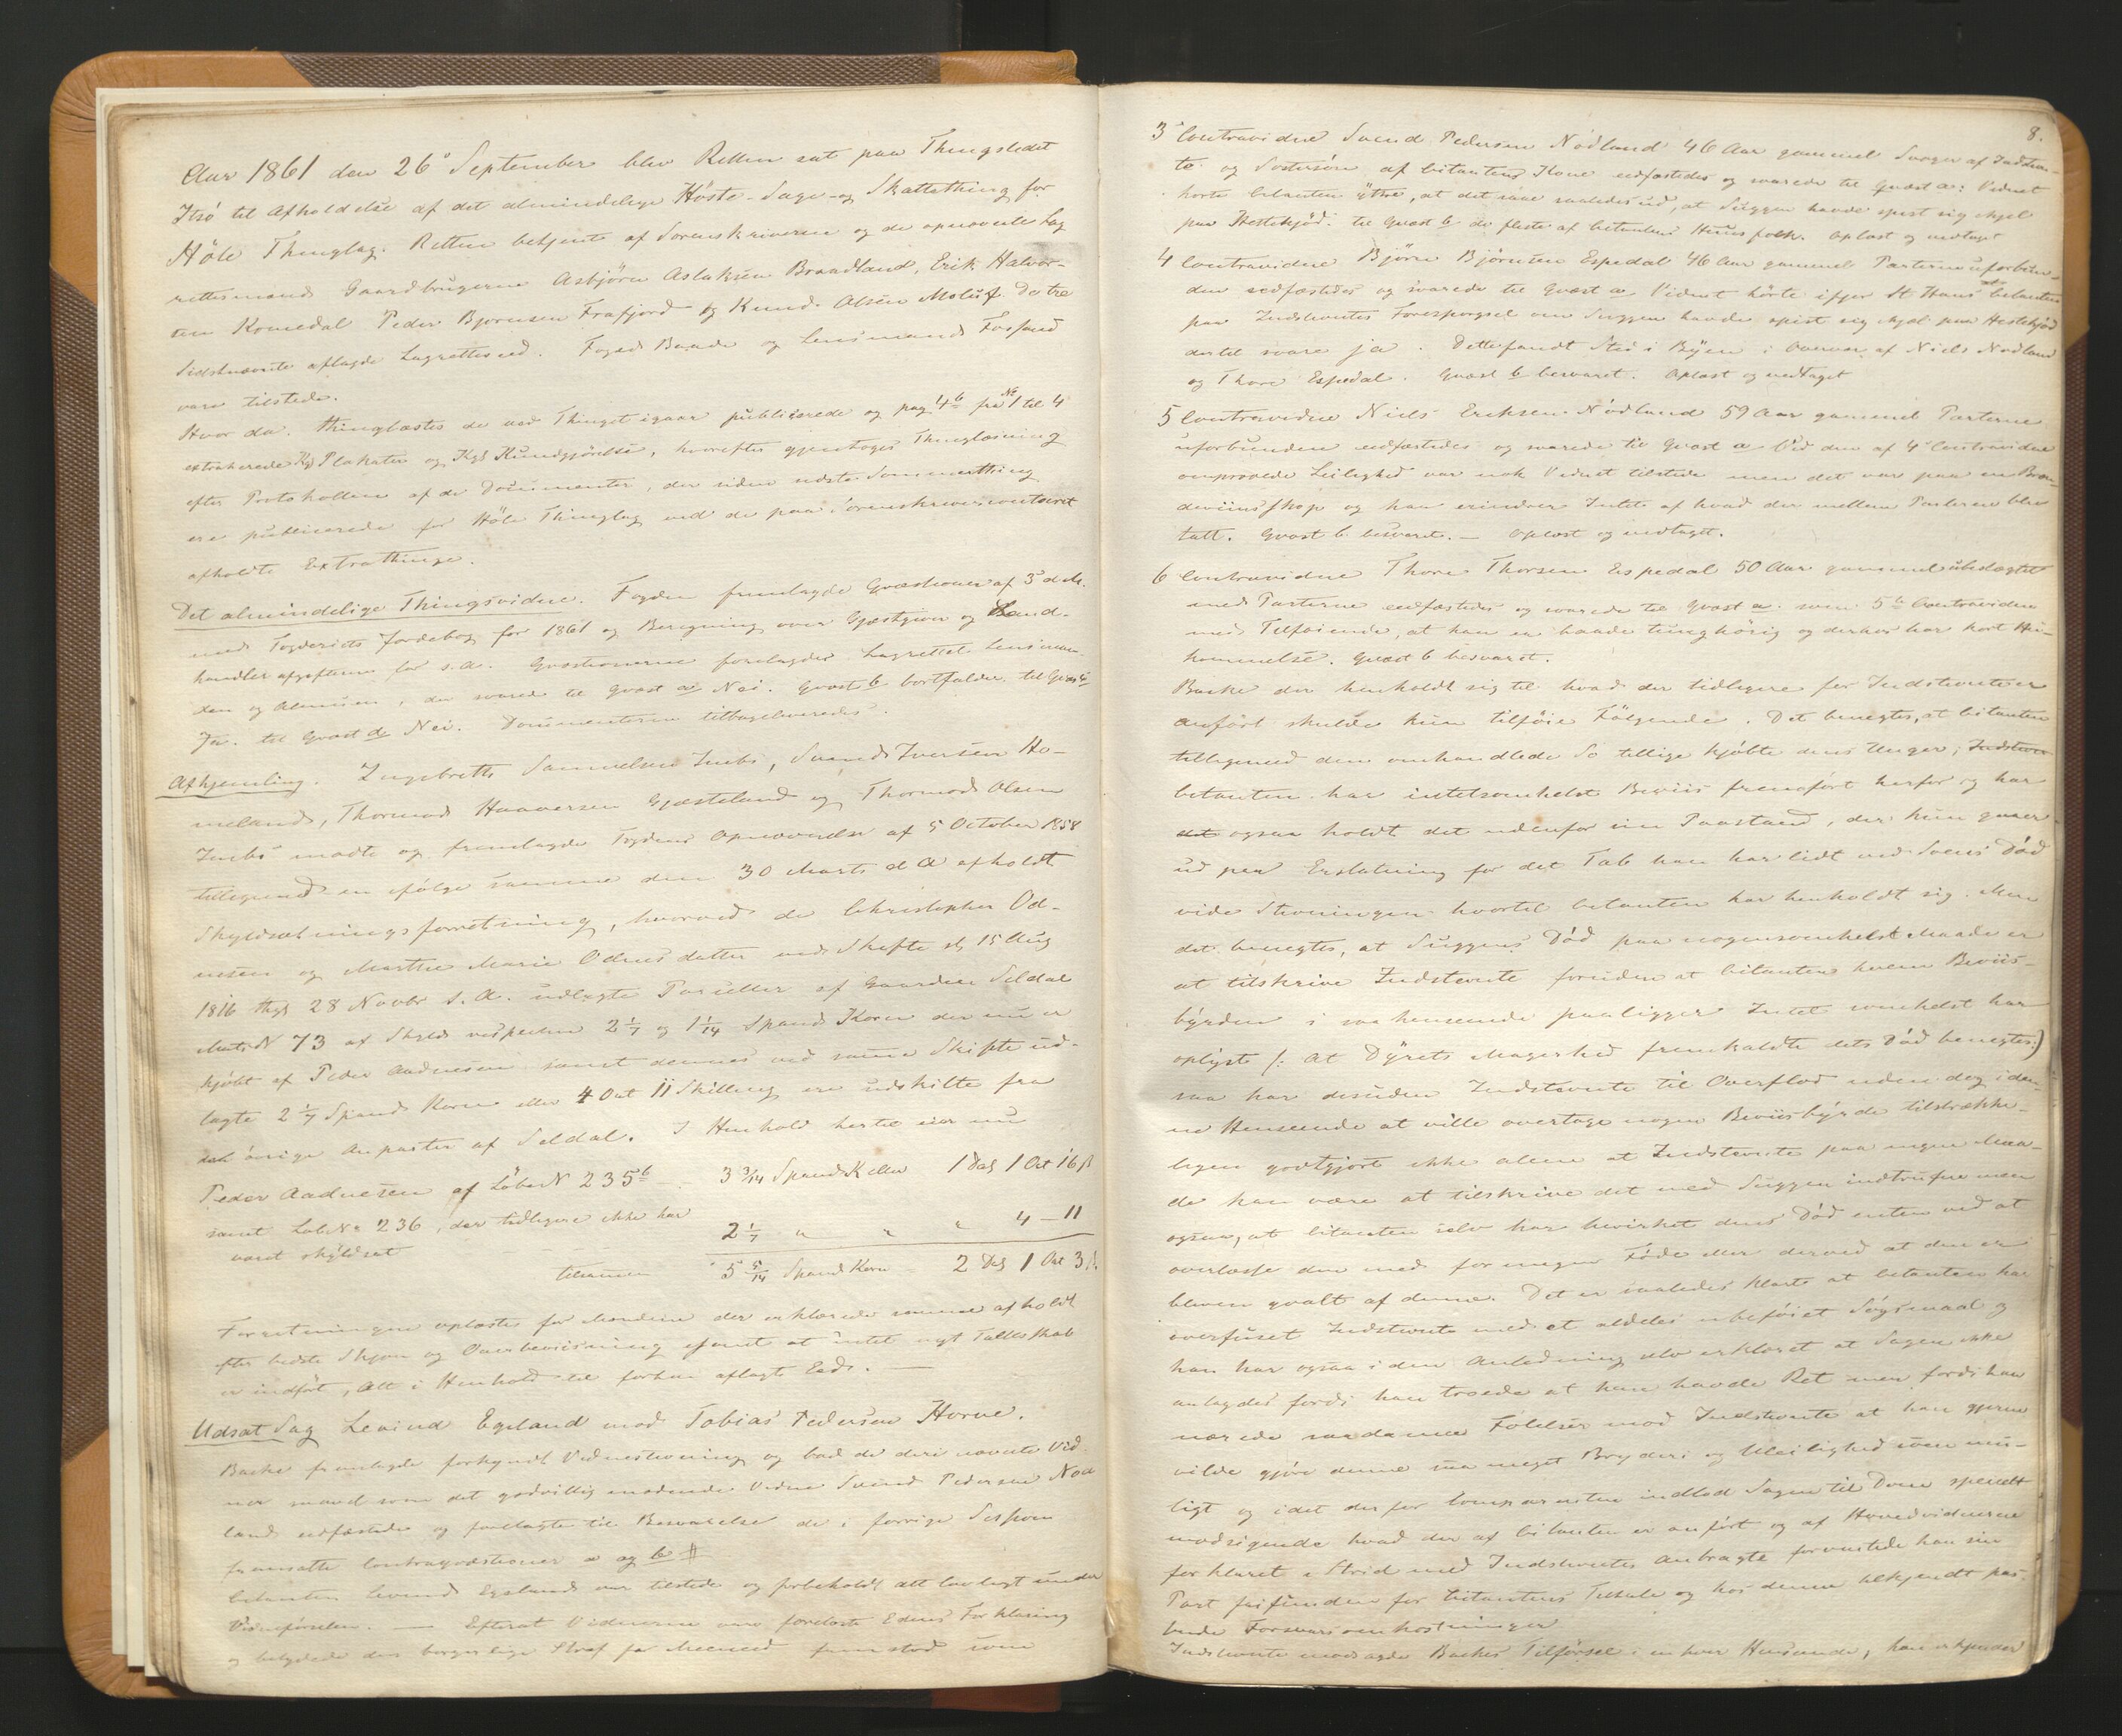 Aar 1861 den 26 September blev Retten sat paa Thingstedet
Itsö til Afholdelse af det almindelige Höste-Sage-og Skattething for
Höle Thinglag. Retten betjent af Sorenskriveren og de opnævnte Lag
rettesmænd Gaardbrugerne Asbjörn Aslaksen Braadland, Erik Halvor-
sen Komedal Peder Bjornsen Frafjord og Knud Olsen Molauf. De tre
sidstnævnte aflagde Lagretteseed. Foged Baade og Lensmand Fossand
vare tilstede.
Hvor da. thinglæstes de ved Thinget igaar publicerede og pag 4 fra No 1 til 4
extraherede Kgl Plakater og Kgl Kundgjörelse, hvorefter gjentoges Thinglæsning
efter Protokollen af de Documenter, der siden sidste Sommerthing
ere publicerede for Höle Thinglag ved de paa Sorenskrivercontoiret
afholdte Extrathinge.
Det almindelige Thingsvidne. Fogden fremlagde Qvæstioner af 3 d M.
med Fogderiets Jordebog for 1861 og Beregning over Gjæstgiver og Land-
handler afgifterne for s.A. Qvæstionerne forelagdes Lagrettet Lensman
den og Almuen, der svarede til Qvæst a Nei. Qvæst b bortfalder. til Qvæst c
Ja. til Qvæst d Nei. Documenterne tilbageleveredes.
Afhjemling. Ingebrett Samuelsen Imbs, Svend Iversen Ho-
meland, Thormod Haaversen Gjæsteland og Thormod Olsen
Imbs mødte og fremlagde Fogdens Opnævnelse af 5 October 1858
tilligemed en ifølge samme den 30 Marts d A afholdt
Skyldsætningsforretning, hvorved de Christopher Od-
nesen og Marthe Marie Odnesdatter ved Skifte slg 15 Aug
1816 thgl 28 Novbr s. A. udlagte Parceller af Gaarden Seldal
Matr No 73 af Skyld respective 2 1/7 og 1 1/14 Spand Korn der nu er
kjöbt af Peder Aadnesen samt dennes ved samme Skifte ud-
lagte 2 1/7 Spand Korn eller 4 Ort 11 Skilling ere udskilte fra
de övrige Anparter af Seldal. I Henhold hertil eier nu
Peder Aadnesen af Löbe No 235 b - 3 3/14 Spand K eller 1 Dal 1 Ort 16 ß
samt Løb No 236, der tidligere ikke har
været skyldsat 2 1/7 " " " 4 - 11
tilsammen 5 5/14 Spand Korn 2 Dal 1 Ort 3 ß.
Forretningen oplæstes for Mændene der erklærede samme afholdt
efter bedste Skjön og Overbeviisning samt at intet nyt Fælleskab
er indført, Alt i Henhold til forhen aflagt Eed. —
Udsat Sag Levind Egeland mod Tobias Pedersen Horve.
Backe fremlagde forkyndt Vidnestevning og bad de deri nævnte Vid
ner saavel som det godvillig mødende Vidne Svend Pedersen Nød
land eedfæstede og forelagte til Besvarelse de i forrige Session
fremsatte Contraqvæstioner a og b
Citanten Levind Egeland var tilstede og forbeholdt alt lovligt under
Vidneførselen. — Efterat Vidnerne vare forelæste Edens Forklaring
og betydede den borgerlige Straf for Meeneed fremstod som
8.
3 Contravidne Svend Pedersen Nödland 46 Aar gammel Svoger af Indstevn-
te og Søstersön af Citantens Kone eedfæstedes og svarede til Qvæst a: Vidnet
hørte Citanten yttre, at det saae saaledes ud, at Suggen havde spist sig ihjel
paa Hestekjöd. til Qvæst b de fleste af Citantens Huusfolk. Oplæst og vedtaget
4 Contravidne Björn Björnsen Espedal 46 Aar gammel Parterne uforbun-
den eedfæstedes og svarede til Qvæst a Vidnet hörte ifjor St Hans at Citanten
paa Indstevntes Forespørgsel om Suggen havde spist sig ihjel paa Hestekjöd
dertil svare ja. Dette fandt Sted i Byen i Overvær af Niels Nødland
og Thore Espedal. Qvæst b besvaret. Oplæst og vedtaget
5 Contravidne Niels Eriksen Nödland 59 Aar gammel Parterne
uforbunden eedfæstedes og svarede til Qvæst a Ved den af 4 Contravidne
omprovede Leilighed var nok Vidnet tilstede men det var paa en Bræn
deviinsshop og han erindrer Intet af hvad der mellem Parterne blev
talt. Qvæst b besvaret. — Oplæst og vedtaget.
6 Contravidne Thore Thorsen Espedal 50 Aar gammel ubeslægtet
med Parterne eedfæstedes og svarede til Qvæst a. som 5 Contravidne
med Tilføiende, at han er baade tunghörig og derhos har kort Hu-
kommelse. Qvæst b besvaret.
Backe der henholdt sig til hvad der tidligere for Indstevnte er
anfört skulde kun tilföie Fölgende. Det benegtes, at Citanten
tilligemed den omhandlede So tillige kjöbte dens Unger,
Citanten har intetsomhelst Beviis fremført herfor og har
ogsaa holdt det udenfor sin Paastand, der kun gaaer
ud paa Erstatning for det Tab han har lidt ved Soens Död
vide Stevningen hvortil Citanten har henholdt sig. Men
det benegtes, at Suggens Död paa nogensomhelst Maade er
at tilskrive Indstevnte foruden at Citanten hvem Beviis-
byrden i saa henseende paaligger Intet somhelst har
oplyst (: At Dyrets Magerhed fremkaldte dets Död benegtes:)
saa har desuden Indstevnte til Overflod uden dog i den
ne Henseende at ville overtage nogen Beviisbyrde tilstrække-
ligen godtgjort ikke alene at Indstevnte paa ingen Maa-
de kan være at tilskrive det med Suggen indtrufne men
ogsaa, at Citanten selv har bevirket dens Död enten ved at
overlæsse den med for megen Föde eller derved at den er
bleven qvalt af denne. Det er saaledes klart at Citanten har
overfuset Indstevnte med et aldeles ubeföiet Sögsmaal og
han har ogsaa i den Anledning selv erklæret at Sagen ikke
anlagdes fordi han troede at han havde Ret men fordi han
nærede saadanne Følelser mod Indstevnte at han gjerne
vilde gjöre denne saa meget Bryderi og Uleilighed som mu-
ligt og idet derfor Comparenten indlod Sagen til Dom specielt
modsigende hvad der af Citanten er anført og af Hovedvidnerne
forklaret i Strid med Indstevntes Anbragte forventede han sin
Part frifunden for Citantens Tiltale og hos denne tilkjendt pas-
sende Forsvarsomkostninger
Indstevnte modsagde Backes Tilførsel i enhver Henseende, han erkjender